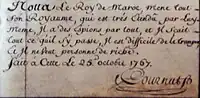 Notta Le Roy de Maroc mene tout
son Royaume, qui est très Etendû par luy
Meme, Il a des Espions par tout, et Il sçait
tout ce quil s'y passe, Il est difficile de le tromper
Ci Il ne veut personne de riche.
fait à Cette Le 28e octobre 1767.
Pournas fs